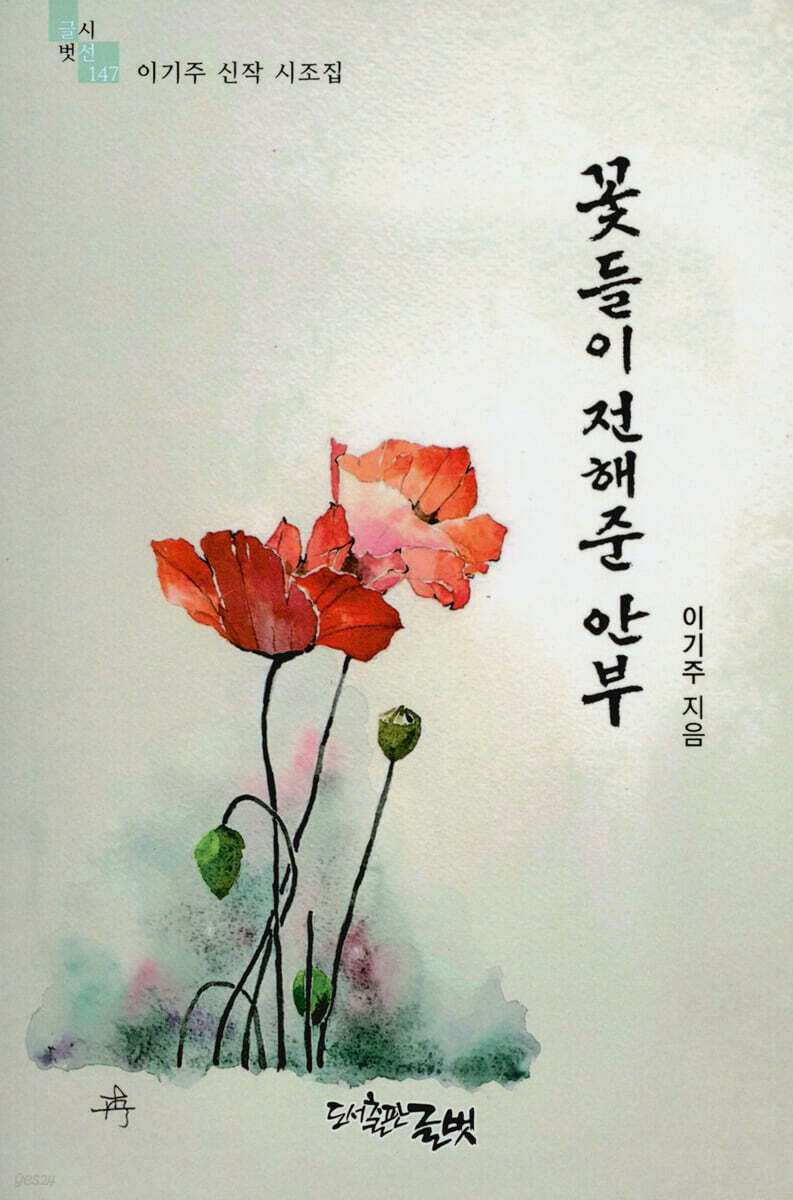 글벗
시선
147
이기주 신작 시조집
꽃들이 전해준 안부
이기주 지음
도서출판 글벗
yes24